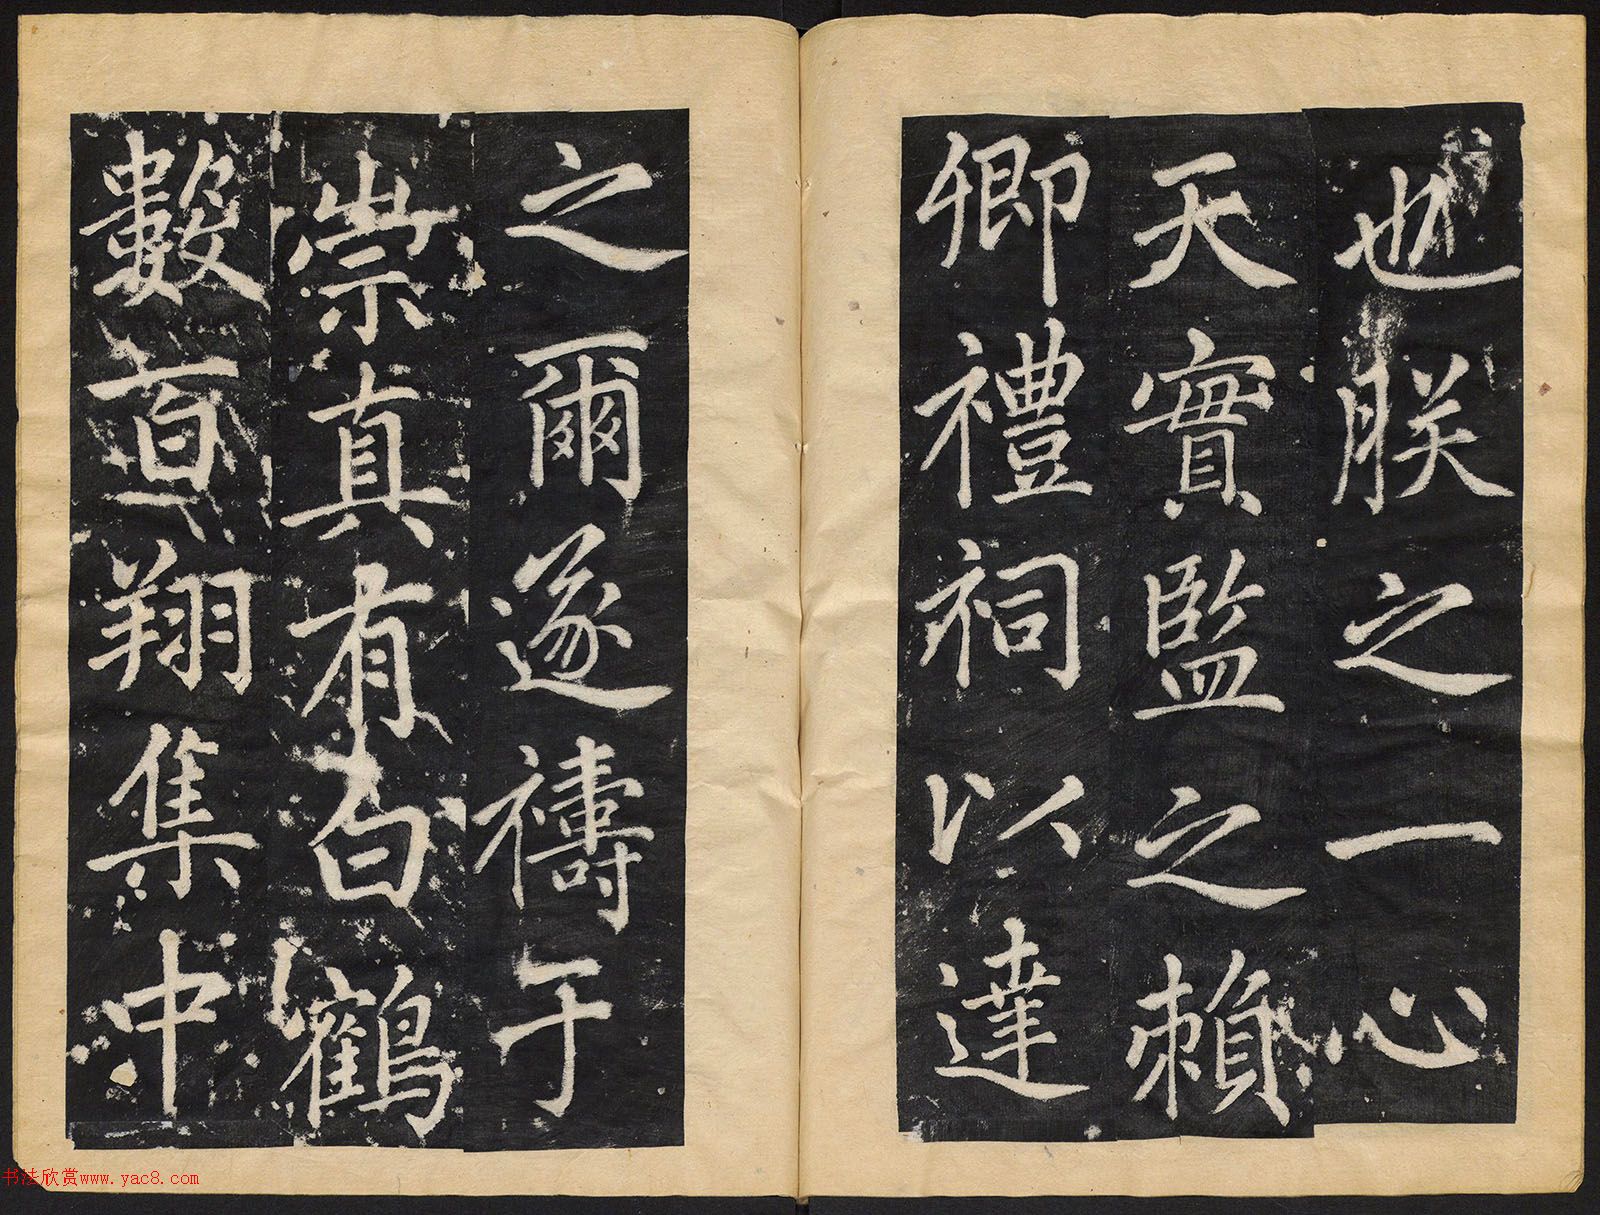 也朕之一心
天實監之賴
卿禮祠以達
之爾遂禱于
崇真有白鶴
數百翔集中
书法欣赏www.yac8.com